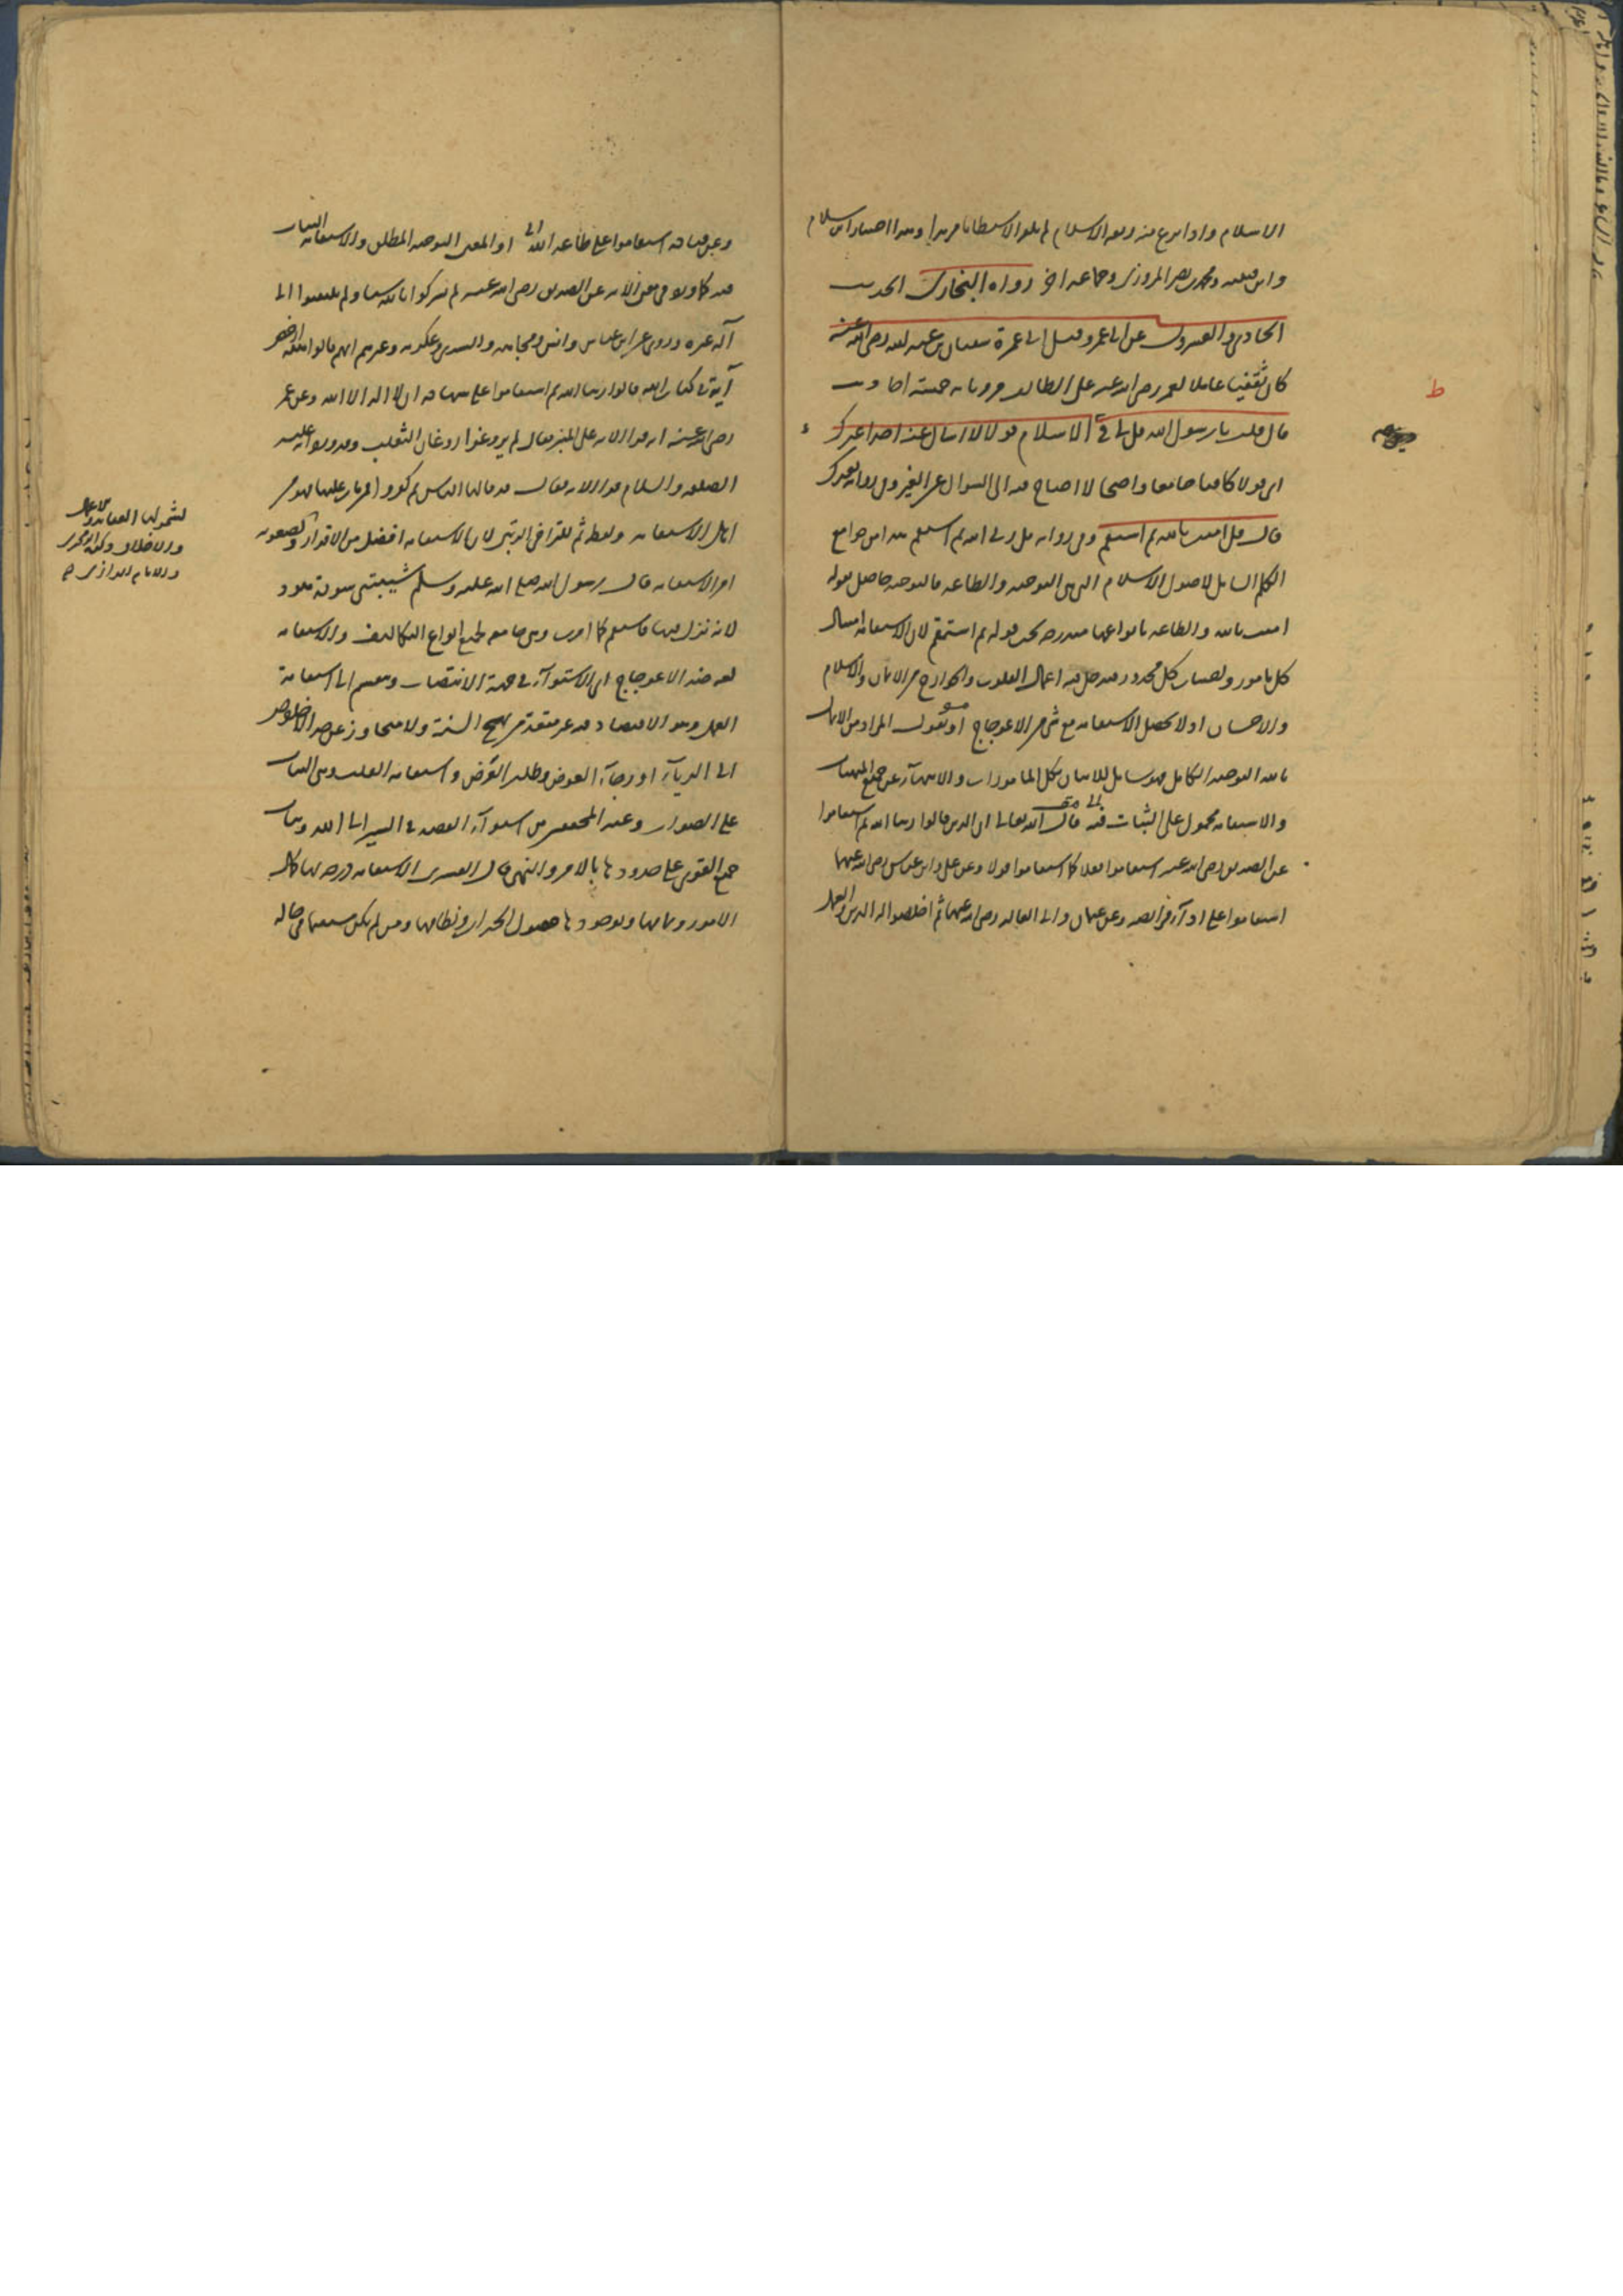 الاسلام واذا نزع منه ربقة الاسلام لم يكن الا شيطانا مريدا وهذا اختيار ابن سلام
وابن قتيبة ومحمد بن نصر المروزي وجماعة اخر رواه البخاري الحديث
الحادي والعشرون عن ابي عمرو وقيل ابي عمرة سفيان بن عبد الله رضي الله عنه
كان ثقفيا عاملا لعمر رضي الله عنه على الطائف مروياته خمسة احاديث
قال قلت يا رسول الله قل لي في الاسلام قولا لا اسال عنه احدا غيرك
اي قولا كافيا جامعا واضحا لا احتاج فيه الى السوال عن الغير وفي رواية بعدك
قال قل امنت بالله ثم استقم وفي رواية قل ربي الله ثم استقم هذا من جوامع
الكلم الشامل لاصول الاسلام التي هي التوحيد والطاعة فالتوحيد حاصل بقوله
امنت بالله والطاعة بانواعها مندرجة تحت قوله ثم استقم لان الاستقامة امتثال
كل مامور واجتناب كل محذور فيدخل فيه اعمال القلوب والجوارح من الايمان والاسلام
والاحسان اذ لا تحصل الاستقامة مع شي من الاعوجاج او نقول المراد من الايمان
بالله التوحيد الكامل فهو شامل للاتيان بكل المامورات والانتهاء عن جميع المنهيات
والاستقامة محمول على الثبات فيه قال الله تعالى ان الذين قالوا ربنا الله ثم استقاموا
عن الصديق رضي الله عنه استقاموا فعلا كما استقاموا قولا وعن علي وابن عباس رضي الله عنهما
استقاموا على اداء فرائضه وعن عثمان وابي العالية رضي الله عنهما ثم اخلصوا له الدين والعمل
وعن قتادة استقاموا على طاعة الله او المعنى التوحيد المطلق والاستقامة الثبات
فيه كما روي في معنى الاية عن الصديق رضي الله عنه لم يشركوا بالله شيئا ولم يلتفتوا الى
اله غيره وروي عن ابن عباس وانس ومجاهد والسدي وعكرمة وغيرهم انهم قالوا
آية في كتاب الله قالوا ربنا الله ثم استقاموا على شهادة ان لا اله الا الله وعن عمر
رضي الله عنه انه قرا الاية على المنبر فقال لم يروغوا روغان الثعلب وقد روي انه عليه
الصلوة والسلام قرا الاية فقال قد قالها الناس ثم كفروا فمن مات عليها فهو من
اهل الاستقامة ولفظ ثم للتراخي الرتبي لان الاستقامة افضل من الاقرار ولصعوبة
امر الاستقامة قال رسول الله صلى الله عليه وسلم شيبتني سورة هود
لانه نزل فيها فاستقم كما امرت وهي جامعة لجميع انواع التكاليف والاستقامة
لغة ضد الاعوجاج اي الاستواء في جهة الانتصاب وينقسم الى استقامة
العمل وهو الاقتصاد فيه غير متعد من نهج السنة ولا متجاوز عن حد الاخلاص
الى الرياء او رجاء العوض وطلب الغرض واستقامة القلب وهي الثبات
على الصواب وعند المحققين من استواء القصد في السير الى الله وثبات
جميع القوى على حدودها بالامر والنهي قال القشيري الاستقامة درجة بها كمال
الامور وتمامها وبوجودها حصول الخيرات ونظامها ومن لم يكن مستقيما في حاله
لشمولها العقائد والاعمال
والاخلاق
والامام الرازي